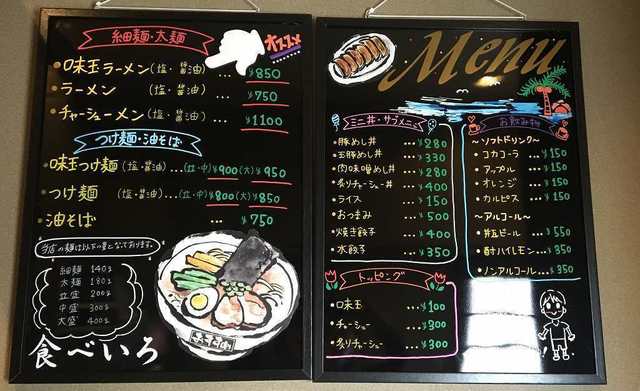 細麺・太麺
オススメ
味玉ラーメン(塩・醤油)…¥850
ラーメン (塩・醤油)…¥750
チャーシューメン(塩・醤油)…¥1100
つけ麺・油そば
味玉つけ麺(塩・醤油)…(並・中)¥900(大)¥950
つけ麺 (塩・醤油)…(並・中)¥800(大)¥850
油そば … ¥750
当店の麺は以下の量となっております。
細麺 140g
太麺 180g
並盛 200g
中盛 300g
大盛 400g
食べいろ
Menu
ミニ丼・サブメニュー
豚めし丼 …¥280
玉豚めし丼 …¥330
肉味噌めし丼 …¥280
炙りチャーシュー丼 …¥400
ライス …¥150
おつまみ …¥500
焼き餃子 …¥400
水餃子 …¥350
トッピング
味玉 …¥100
チャーシュー …¥300
炙りチャーシュー …¥350
お飲み物
〜ソフトドリンク〜
コカコーラ …¥150
アップル …¥150
オレンジ …¥150
カルピス …¥150
〜アルコール〜
瓶ビール…¥550
酎ハイレモン…¥350
ノンアルコール…¥350